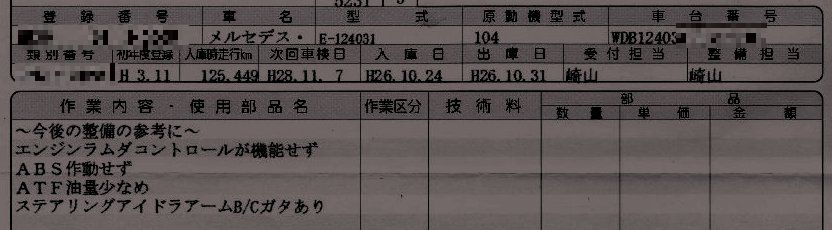 5231
登録番号 車名 型式 原動機型式 車台番号
メルセデス・ E-124031 104 WDB12403
類別番号 初年度登録 入庫時走行km 次回車検日 入庫日 出庫日 受付担当 整備担当
H 3.11 125,449 H28.11. 7 H26.10.24 H26.10.31 崎山 崎山
作業内容・使用部品名 作業区分 技術料 部品
数量 単価 金額
～今後の整備の参考に～
エンジンラムダコントロールが機能せず
ABS作動せず
ATF油量少なめ
ステアリングアイドラアームB/Cガタあり